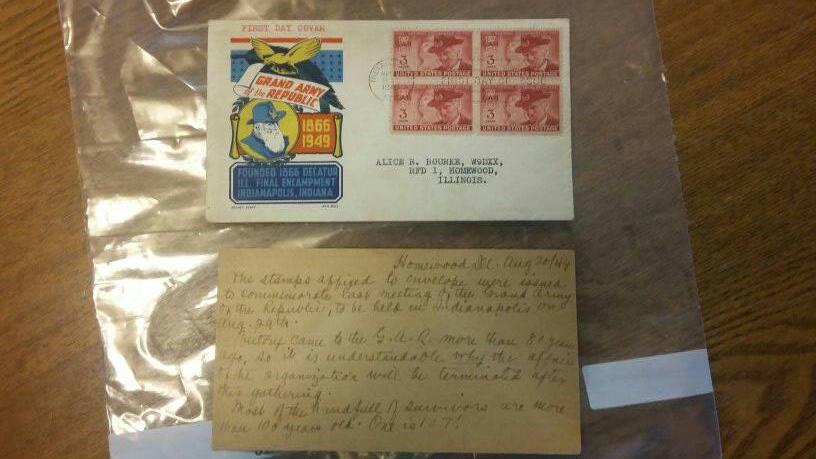 FIRST DAY COVER
GRAND ARMY
of the REPUBLIC
1866
1949
FOUNDED 1866 DECATUR
ILL. FINAL ENCAMPMENT
INDIANAPOLIS, INDIANA.
3
UNITED STATES POSTAGE
3
UNITED STATES POSTAGE
GAR
3
UNITED STATES POSTAGE
GAR
3
UNITED STATES POSTAGE
FIRST DAY OF ISSUE
ALICE R. BOURKE, W9DXX,
RFD 1, HOMEWOOD,
ILLINOIS.
Homewood Ill. Aug 20/49
The stamps affixed to envelope were issued
to commemorate last meeting of the Grand Army
of the Republic, to be held in Indianapolis on
Aug. 29th.
Victory came to the G.A.R. more than 80 years
ago, so it is understandable why the affairs
of the organization will be terminated after
this gathering.
Most of the handfull of survivors are more
than 100 years old. One is 107!